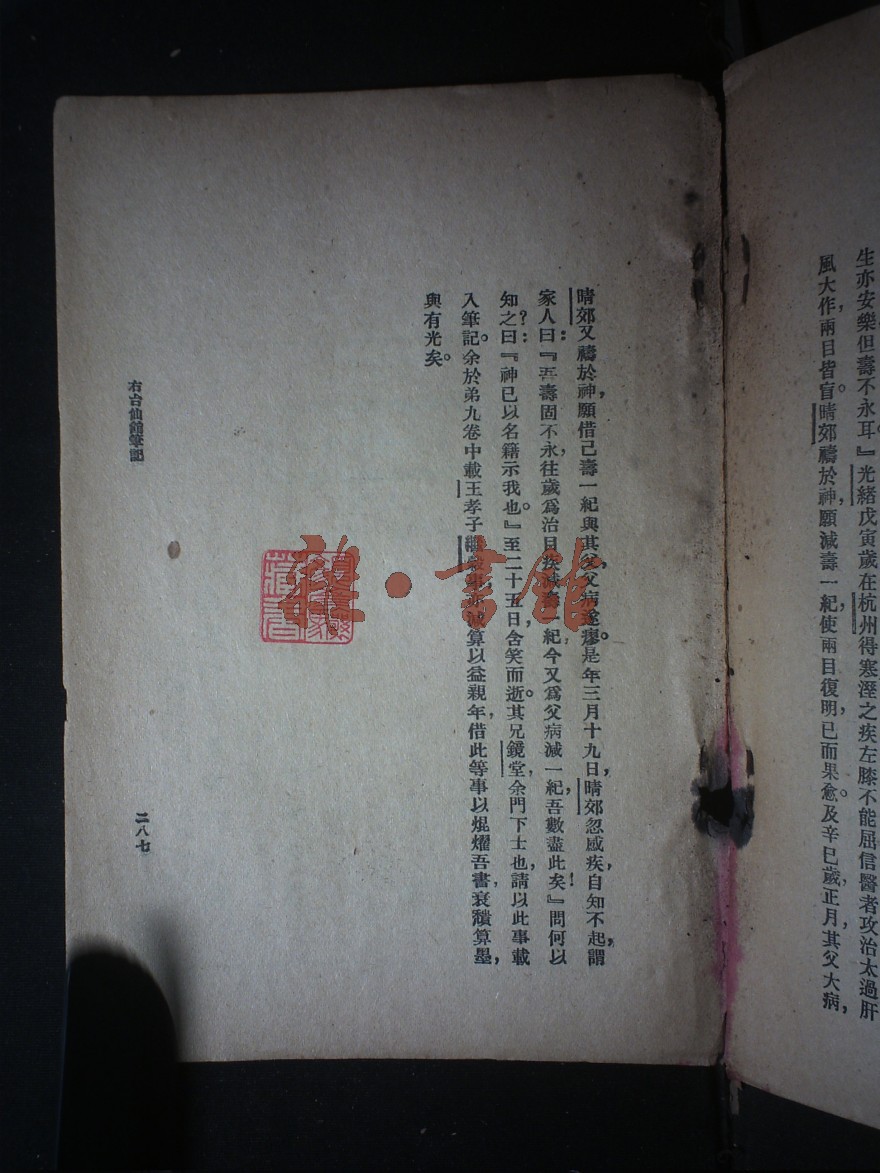 生亦安樂但壽不永耳。』光緒戊寅歲在杭州得寒溼之疾左膝不能屈信醫者攻治太過肝
風大作，兩目皆盲。晴郊禱於神，願減壽一紀，使兩目復明，已而果愈。及辛巳歲正月，其父大病，
晴郊又禱於神，願借己壽一紀與其父，父病遂瘳。是年三月十九日，晴郊忽感疾，自知不起，謂
家人曰：『吾壽固不永，往歲爲治目疾減壽一紀，今又爲父病減一紀，吾數盡此矣！』問何以
知之？曰：『神已以名籍示我也。』至二十五日，含笑而逝。其兄鏡堂，余門下士也，請以此事載
入筆記。余於弟九卷中載王孝子事，亦減算以益親年，借此等事以焜燿吾書，衰穨算墨，
與有光矣。
右台仙館筆記
二八七
雅·書館